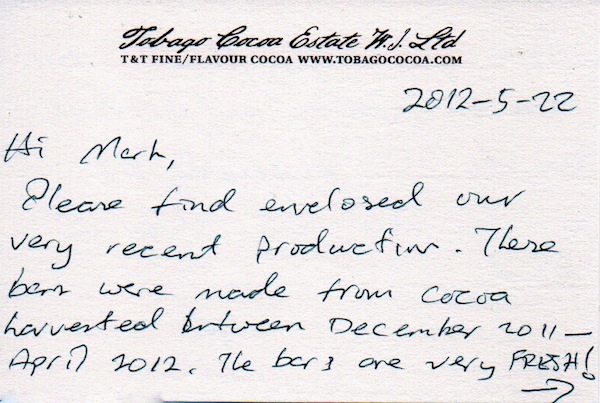 Tobago Cocoa Estate W.I. Ltd
T&T FINE/FLAVOUR COCOA WWW.TOBAGOCOCOA.COM
2012-5-22
Hi Mark,
Please find enclosed our
very recent production. These
bars were made from cocoa
harvested between December 2011–
April 2012. The bars are very FRESH!
→